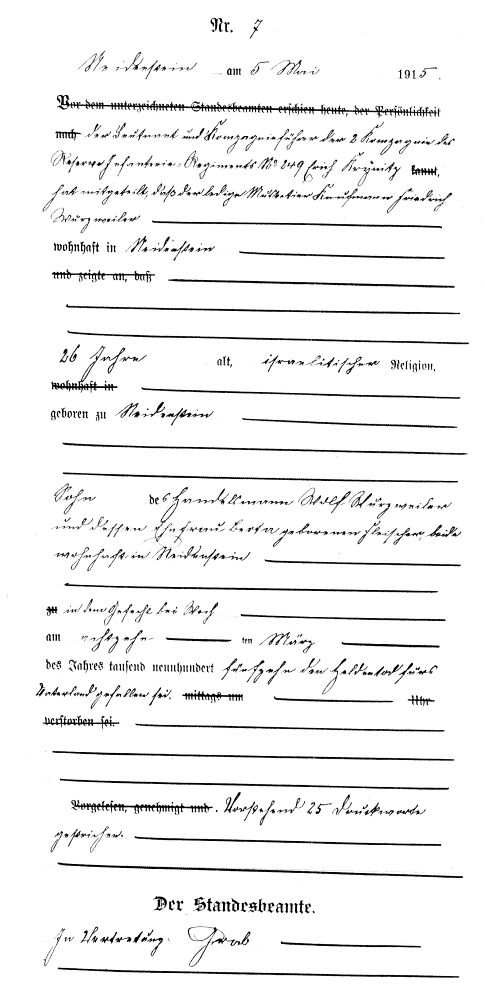 Nr. 7
Neidenstein am 5 Mai 1915.
Vor dem unterzeichneten Standesbeamten erschien heute, der Persönlichkeit
nach der Leutnant und Kompagnieführer der 2 Kompagnie des
Reserve Infanterie-Regiments No 249 Erich Krynitz kannt,
hat mitgeteilt, daß der ledige Musketier Kaufmann Friedrich
Wurzweiler
wohnhaft in Neidenstein
und zeigte an, daß
26 Jahre alt, israelitischer Religion,
wohnhaft in
geboren zu Neidenstein
Sohn des Handelsmann Wolf Wurzweiler
und dessen Ehefrau Berta geborenen Fleischer beide
wohnhaft in Neidenstein
zu in dem Gefecht bei
am achtzehn ten März
des Jahres tausend neunhundert fünfzehn den Heldentod fürs
Vaterland gefallen sei. mittags um Uhr
verstorben sei.
Vorgelesen, genehmigt und . Vorstehend 25 Druckworte
gestrichen.
Der Standesbeamte.
In Vertretung: Grab